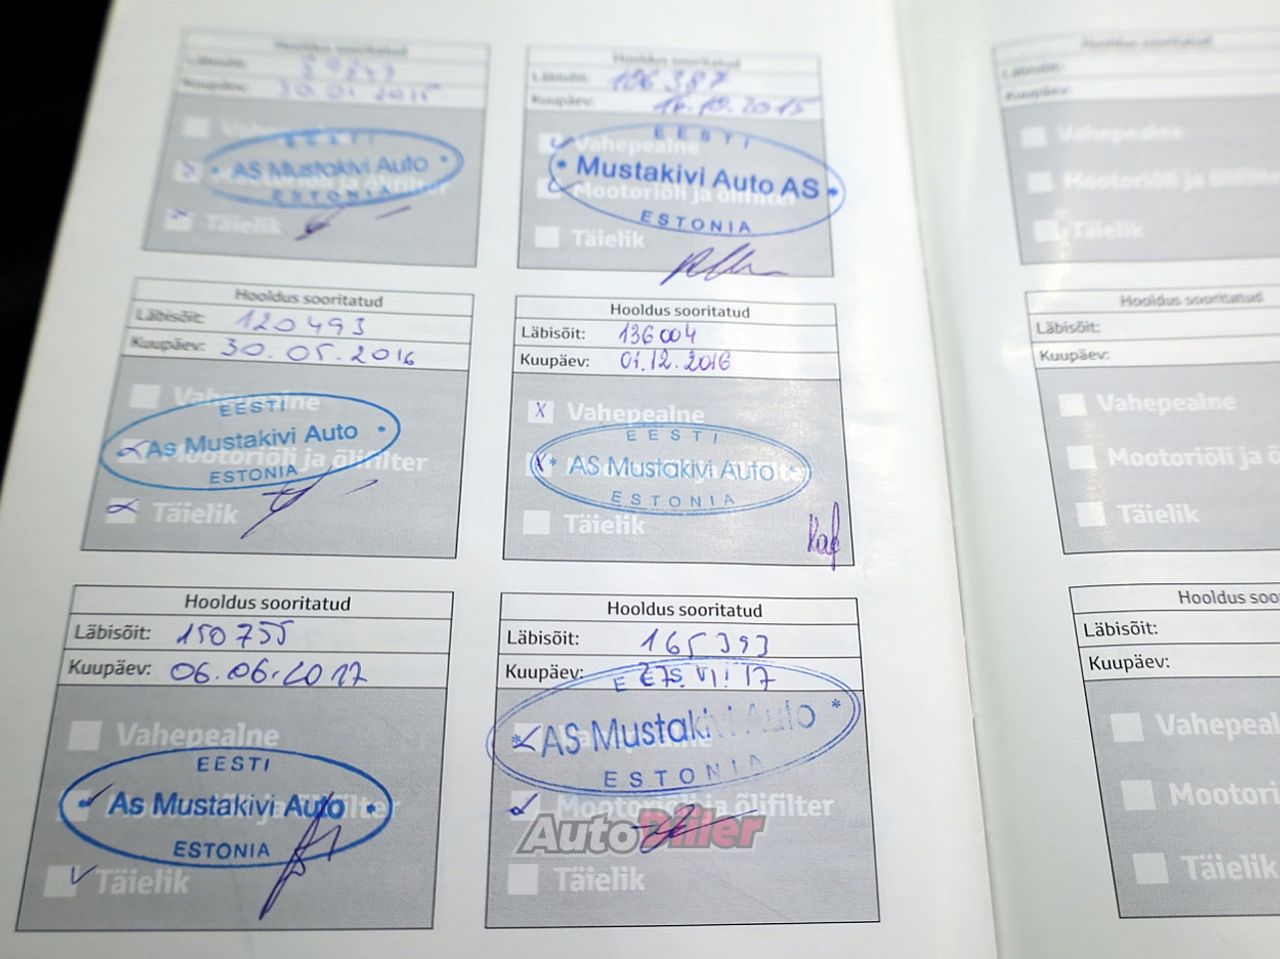 Hooldus sooritatud
Läbisõit:
Kuupäev: 30.01 2015
Vahepealne
EESTI
AS Mustakivi Auto
ESTONIA
Täielik
Hooldus sooritatud
Läbisõit: 106 387
Kuupäev: 10.2015
Vahepealne
EESTI
* Mustakivi Auto AS *
Mootoriõli ja õlifilter
ESTONIA
Täielik
Hooldus sooritatud
Läbisõit: 120493
Kuupäev: 30.05.2016
Vahepealne
EESTI
As Mustakivi Auto *
Mootoriõli ja õlifilter
ESTONIA
Täielik
Hooldus sooritatud
Läbisõit: 136004
Kuupäev: 01.12.2016
x Vahepealne
EESTI
x * AS Mustakivi Auto *
ESTONIA
Täielik
Hooldus sooritatud
Läbisõit: 150755
Kuupäev: 06.06.2017
Vahepealne
EESTI
* As Mustakivi Auto *
ESTONIA
Täielik
Hooldus sooritatud
Läbisõit: 165393
Kuupäev:
* AS Mustakivi Auto *
ESTONIA
Mootoriõli ja õlifilter
AutoDiiler
Täielik
Hooldus sooritatud
Läbisõit:
Kuupäev:
Vahepealne
Mootoriõli ja õlifilter
Täielik
Hooldus sooritatud
Läbisõit:
Kuupäev:
Vahepealne
Mootoriõli ja õ
Täielik
Hooldus soo
Läbisõit:
Kuupäev:
Vahepeal
Mootori
Täielik